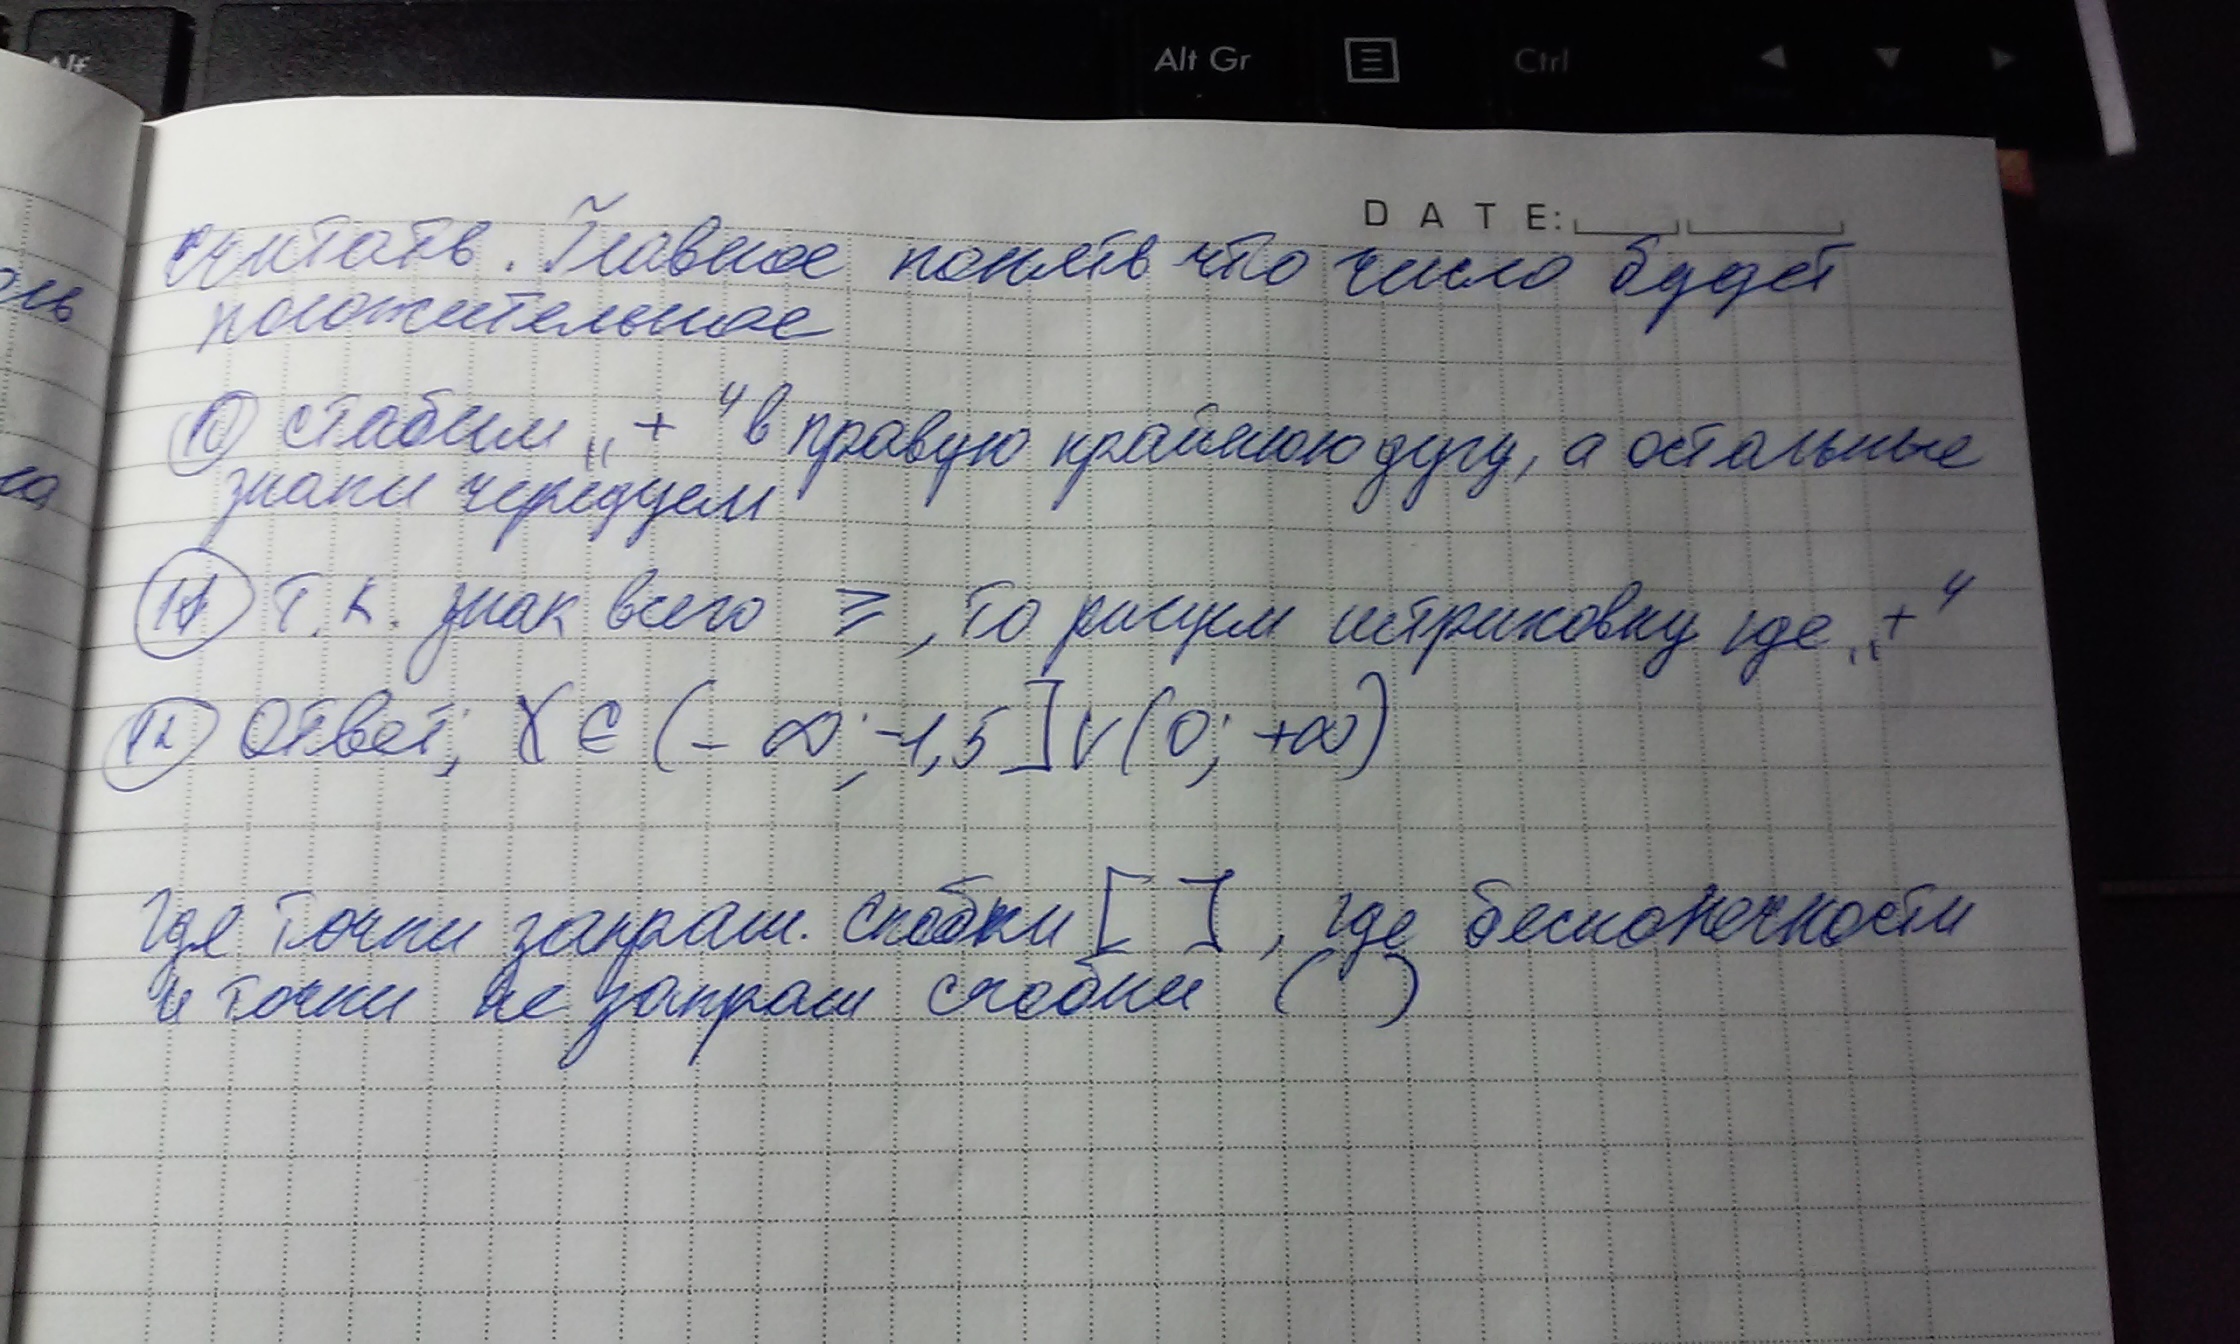 Alt
Alt Gr
Ctrl
DATE:
считать. Главное понять что число будет
положительное
10 ставим „+" в правую крайнюю дугу, а остальные
знаки чередуем
11 Т.К. знак всего ≥, то рисуем штриховку где „+"
12 Ответ; X ∈ (-∞; -1,5] ∨ (0; +∞)
Где точки закраш. скобки [ ], где бесконечности
и точки не закраш скобки ( )